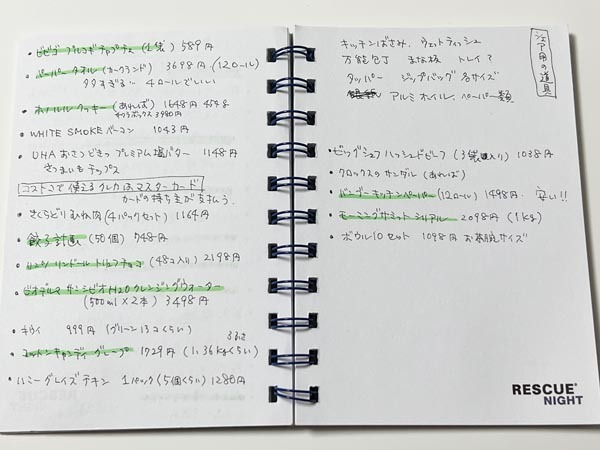 ・ビビゴ プルコギチャプチェ (1袋) 589円
・ペーパータオル (カークランド) 3698円 (12ロール)
多すぎる… 4ロールでいい
・ホノルルクッキー (あれば) 1648円 454g
ギフトボックス 3980円
・WHITE SMOKE ベーコン 1043円
・UHA おさつどきっ プレミアム塩バター 1148円
さつまいもチップス
コストコで使えるクレカはマスターカード
カードの持ち主が支払う
・さくらどり むね肉 (4パックセット) 1164円
・餃子計画 (50個) 748円
・リンツ リンドール トリュフチョコ (48コ入り) 2198円
・ビオデルマ サンシビオ H2O クレンジングウォーター
(500ml×2本) 3498円
・キウイ 999円 (グリーン13コくらい)
・コットンキャンディグレープ 1729円 (1.36kgくらい)
・ハニーグレイズチキン 1パック (5個くらい) 1280円
シェア用の道具
キッチンばさみ、ウェットティッシュ
万能包丁 まな板 トレイ?
タッパー ジップバッグ各サイズ
アルミホイル、ペーパー類
・ビッグシェフ ハッシュドビーフ (3袋入り) 1038円
・クロックスのサンダル (あれば)
・バンダーキッチンペーパー (12ロール) 1498円 安い!!
・モーニングサミット シリアル 2098円 (1kg)
・ボウル10セット 1098円 お茶碗サイズ
RESCUE
NIGHT
RESCUE